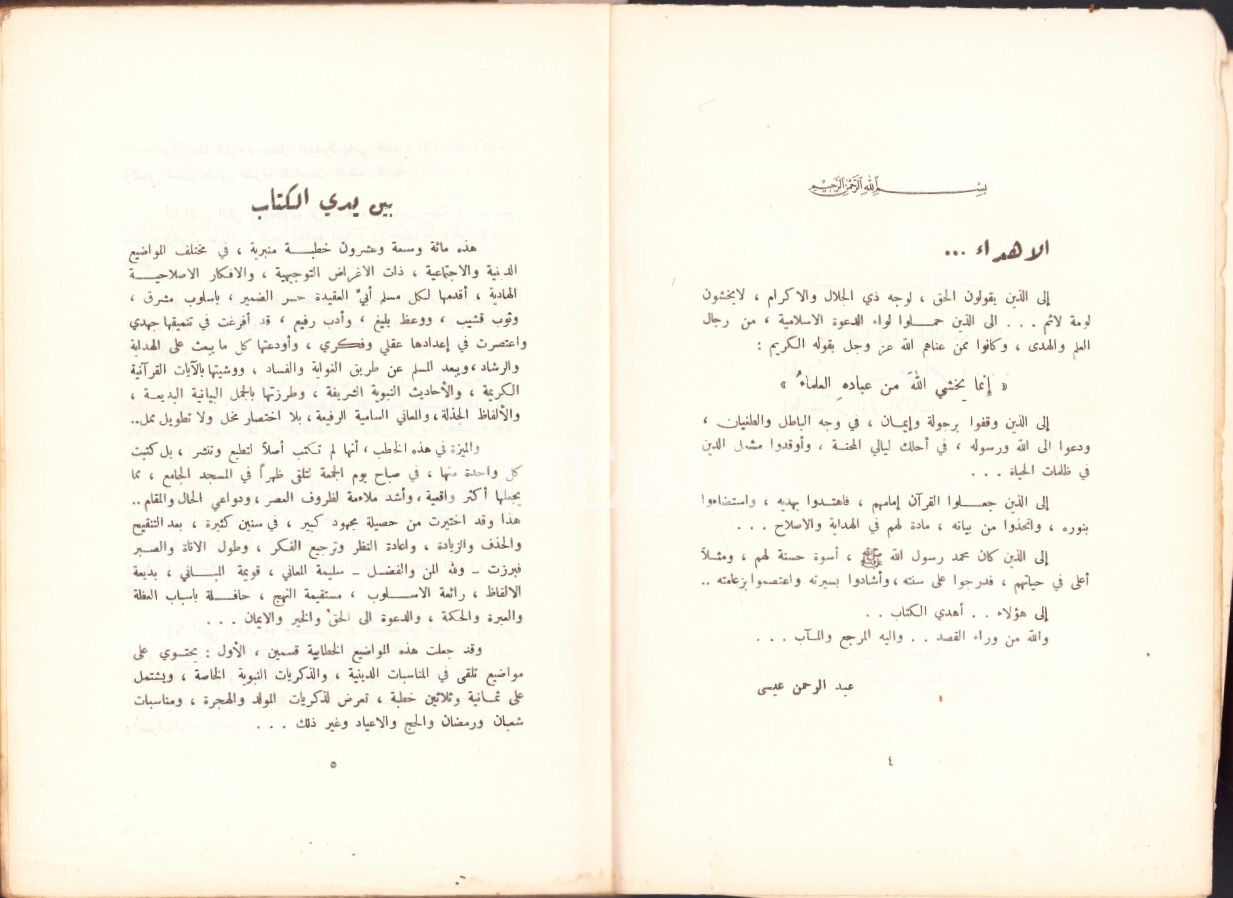 بسم الله الرحمن الرحيم
الاهداء ...
إلى الذين يقولون الحق ، لوجه ذي الجلال والاكرام ، لايخشون
لومة لائم . . . الى الذين حمـلوا لواء الدعوة الاسلامية ، من رجال
العلم والهدى ، وكانوا ممن عناهم الله عز وجل بقوله الكريم :
« إنما يخشي اللهَ من عبادهِ العلماءُ »
إلى الذين وقفوا برجولة وإيمـان ، في وجه الباطل والطغيان ،
ودعوا الى الله ورسوله ، في أحلك ليالي المحنـة ، وأوقدوا مشعل الدين
في ظلمات الحياة . . .
إلى الذين جعـلوا القرآن إمامهم ، فاهتـدوا بهديه ، واستضاءوا
بنوره ، واتخذوا من بيانه ، مادة لهم في الهداية والاصلاح . . .
إلى الذين كان محمد رسول الله ﷺ ، أسوة حسنة لهم ، ومثـلاً
أعلى في حياتهم ، فدرجوا على سنته ، وأشادوا بسيرته واعتصموا بزعامته ..
إلى هؤلاء . . أهدي الكتاب . .
والله من وراء القصد . . واليه المرجع والمـآب . . .
عبد الرحمن عيسى
٤
بين يدي الكتاب
هذه مائة وسعة وعشرون خطبـة منبرية ، في مختلف المواضيع
الدينية والاجتماعية ، ذات الاغراض التوجيهية ، والافكار الاصلاحيـة
الهادية ، أقدمها لكل مسلم أبيّ العقيدة حـر الضمير ، باسلوب مشرق ،
وثوب قشيب ، ووعظ بليغ ، وأدب رفيع ، قد أفرغت في تنميقها جهدي
واعتصرت في إعدادها عقلي وفكري ، وأودعتها كل ما يبعث على الهداية
والرشاد ، ويبعد المسلم عن طريق الغواية والفساد ، ووشيتها بالآيات القرآنية
الكريمة ، والأحاديث النبوية الشريفة ، وطرزتها بالجمل البيانية البديعـة ،
والألفاظ الجذلة ، والمعاني السامية الرفيعة ، بلا اختصار مخل ولا تطويل ممل..
والميزة في هذه الخطب ، أنها لم تكتب أصلاً لتطبع وتنشر ، بل كتبت
كل واحدة منها ، في صباح يوم الجمعة لتلقى ظهراً في المسجد الجامع ، مما
يجعلها أكثر واقعية ، وأشد ملاءمة لظروف العصر ، ودواعي الحال والمقام ..
هذا وقد اختيرت من حصيلة مجهود كبير ، في سنين كثيرة ، بعد التنقيح
والحذف والزيادة ، واعادة النظر وترجيع الفكر ، وطول الاناة والصـبر
فبرزت ــ ولله المن والفضـل ــ سليمة المعاني ، قويمة المبـاني ، بديعة
الالفاظ ، رائعة الاسـلوب ، مستقيمة النهج ، حافـلة باسباب العظة
والعبرة والحكمة ، والدعوة الى الحق والخير والايمان . . .
وقد جعلت هذه المواضيع الخطابية قسمين ، الأول : يحتـوي على
مواضيع تلقى في المناسبات الدينية ، والذكريات النبوية الخاصة ، ويشتمل
على ثمـانية وثلاثين خطبة ، تعرض لذكريات المولد والهجرة ، ومناسبات
شعبان ورمضان والحج والاعياد وغير ذلك . . .
٥